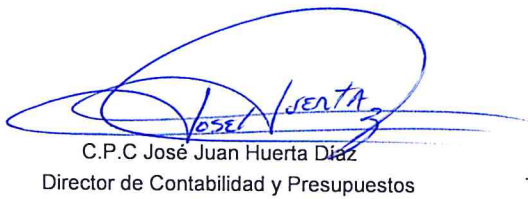 José Huerta
C.P.C José Juan Huerta Díaz
Director de Contabilidad y Presupuestos